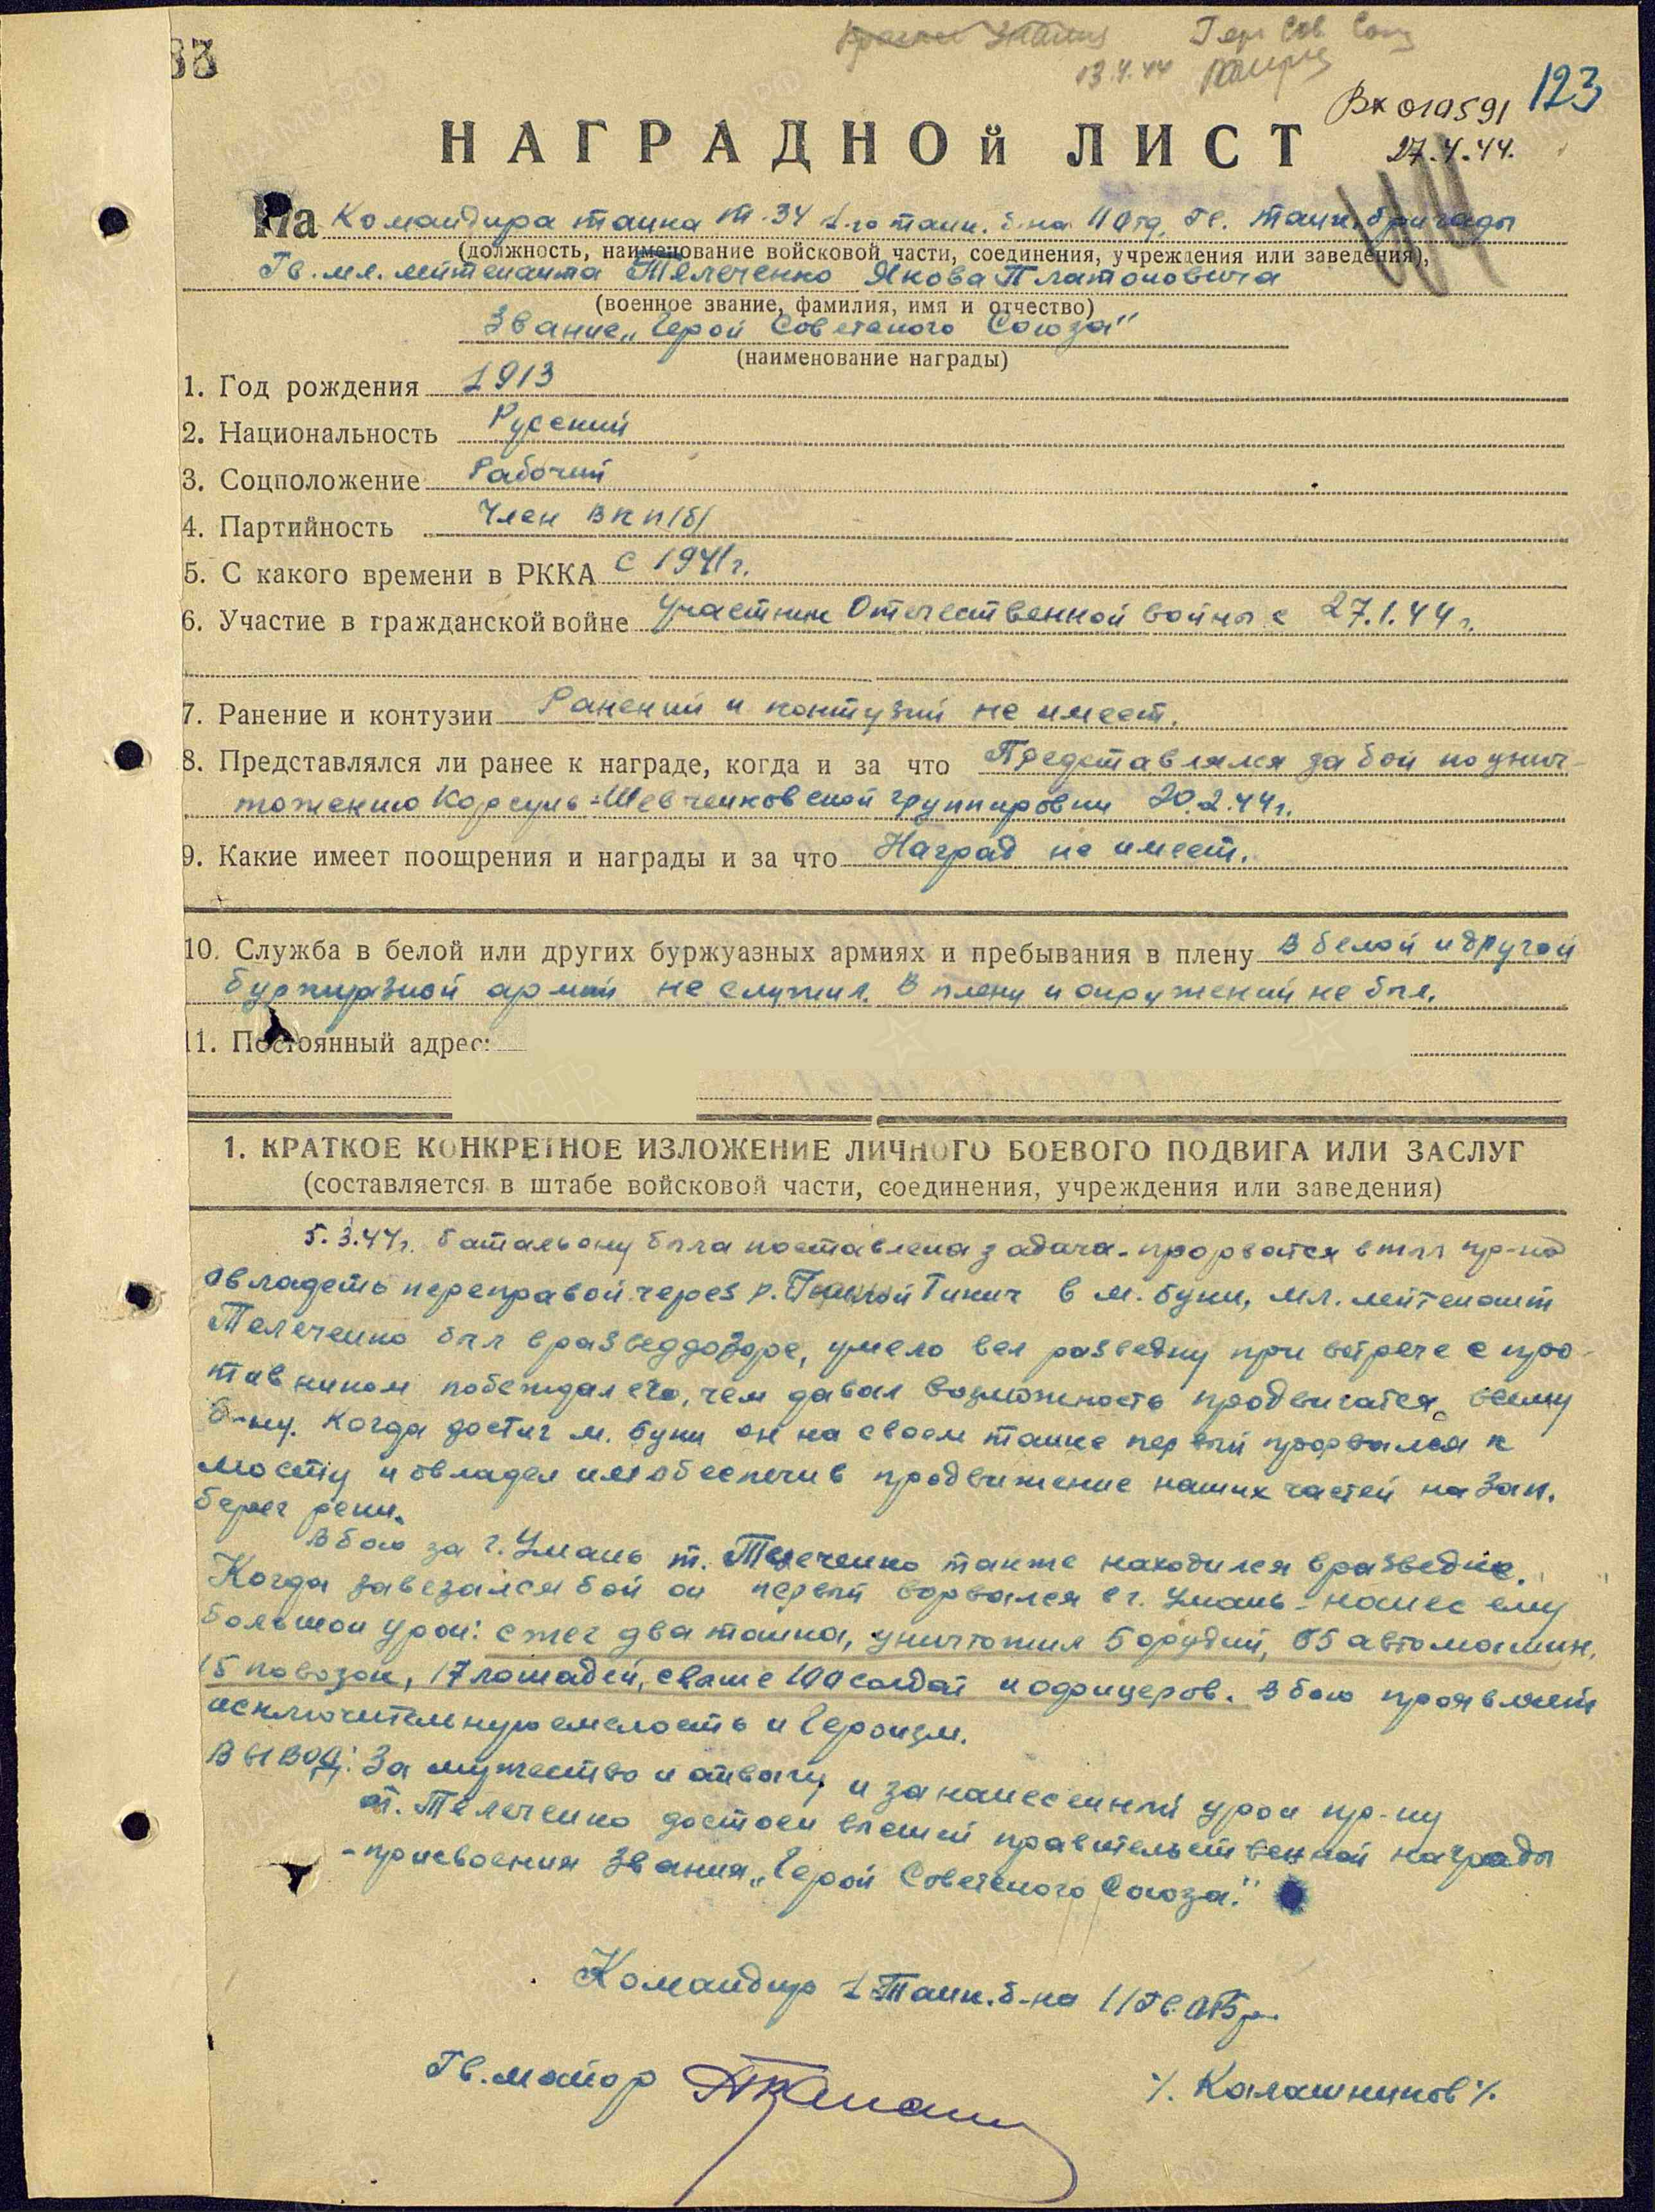 33
Красное Знамя Гер Сов Союз
13.4.44
Вх 019591 123
27.4.44.
НАГРАДНОй ЛИСТ
На Командира танка т-34 1-го танк. б-на 11 отд. Гв. танк. бригады
(должность, наименование войсковой части, соединения, учреждения или заведения),
Гв. мл. лейтенанта Телеченко Якова Платоновича
(военное звание, фамилия, имя и отчество)
Звание „Герой Советского Союза"
(наименование награды)
1. Год рождения 1913
2. Национальность Русский
3. Соцположение Рабочий
4. Партийность Член ВКП/б/
5. С какого времени в РККА с 1941г.
6. Участие в гражданской войне участник Отечественной войны с 27.1.44г.
7. Ранение и контузии Ранений и контузий не имеет.
8. Представлялся ли ранее к награде, когда и за что Представлялся за бои по унич-
тожению Корсунь-Шевченковской группировки 20.2.44г.
9. Какие имеет поощрения и награды и за что Наград не имеет.
10. Служба в белой или других буржуазных армиях и пребывания в плену В белой и другой
буржуазной армий не служил. В плену и окружений не был.
11. Постоянный адрес:
1. КРАТКОЕ КОНКРЕТНОЕ ИЗЛОЖЕНИЕ ЛИЧНОГО БОЕВОГО ПОДВИГА ИЛИ ЗАСЛУГ
(составляется в штабе войсковой части, соединения, учреждения или заведения)
5.3.44г. батальону была поставлена задача - прорватся в тыл пр-ка
овладеть переправой через р. Гнилой Тикич в м. Буки, мл. лейтенант
Телеченко был в разведдозоре, умело вел разведку при встрече с про-
тивником побеждал его, чем давал возможность продвигатся всему
б-ну. Когда достиг м. Буки он на своем танке первый прорвался к
мосту и овладел им обеспечив продвижение наших частей на зап.
берег реки.
В бою за г. Умань т. Телеченко также находился в разведке.
Когда завезался бой он первый ворвался в г. Умань - нанес ему
большой урон: сжег два танка, уничтожил 5 орудий, 65 автомашин,
15 повозок, 17 лошадей, свыше 100 солдат и офицеров. В бою проявляет
исключительную смелость и героизм.
ВЫВОД: За мужество и отвагу и за нанесенный урон пр-ку
т. Телеченко достоен высшей правительственной награды
- присвоения звания „Герой Советского Союза".
Командир 1 Танк. б-на 11 Гв. ОТБр.
Гв. майор /. Калашников /.